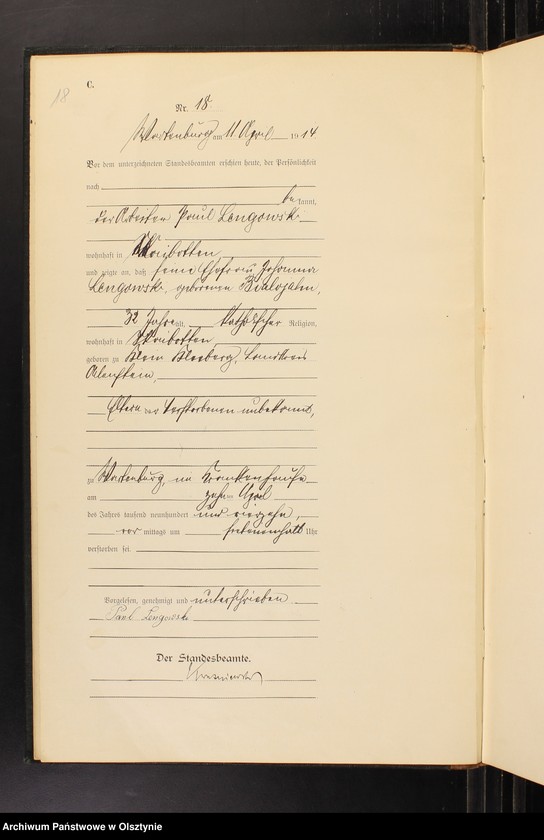 18
C.
Nr. 18.
Wartenburg am 11 April 1914
Vor dem unterzeichneten Standesbeamten erschien heute, der Persönlichkeit
nach
be kannt,
der Arbeiter Paul Lengowski
wohnhaft in Skaibotten
und zeigte an, daß seine Ehefrau Johanna
Lengowski, geborenen Bialojahn,
32 Jahre alt, katholischer Religion,
wohnhaft in Skaibotten,
geboren zu Klein Kleeberg, Landkreis
Allenstein,
Eltern der Verstorbenen unbekannt,
zu Wartenburg im Krankenhause
am zehn April
des Jahres tausend neunhundert und vierzehn,
vor mittags um Uhr
verstorben sei.
Vorgelesen, genehmigt und unterschrieben
Paul Lengowski
Der Standesbeamte.
Archiwum Państwowe w Olsztynie